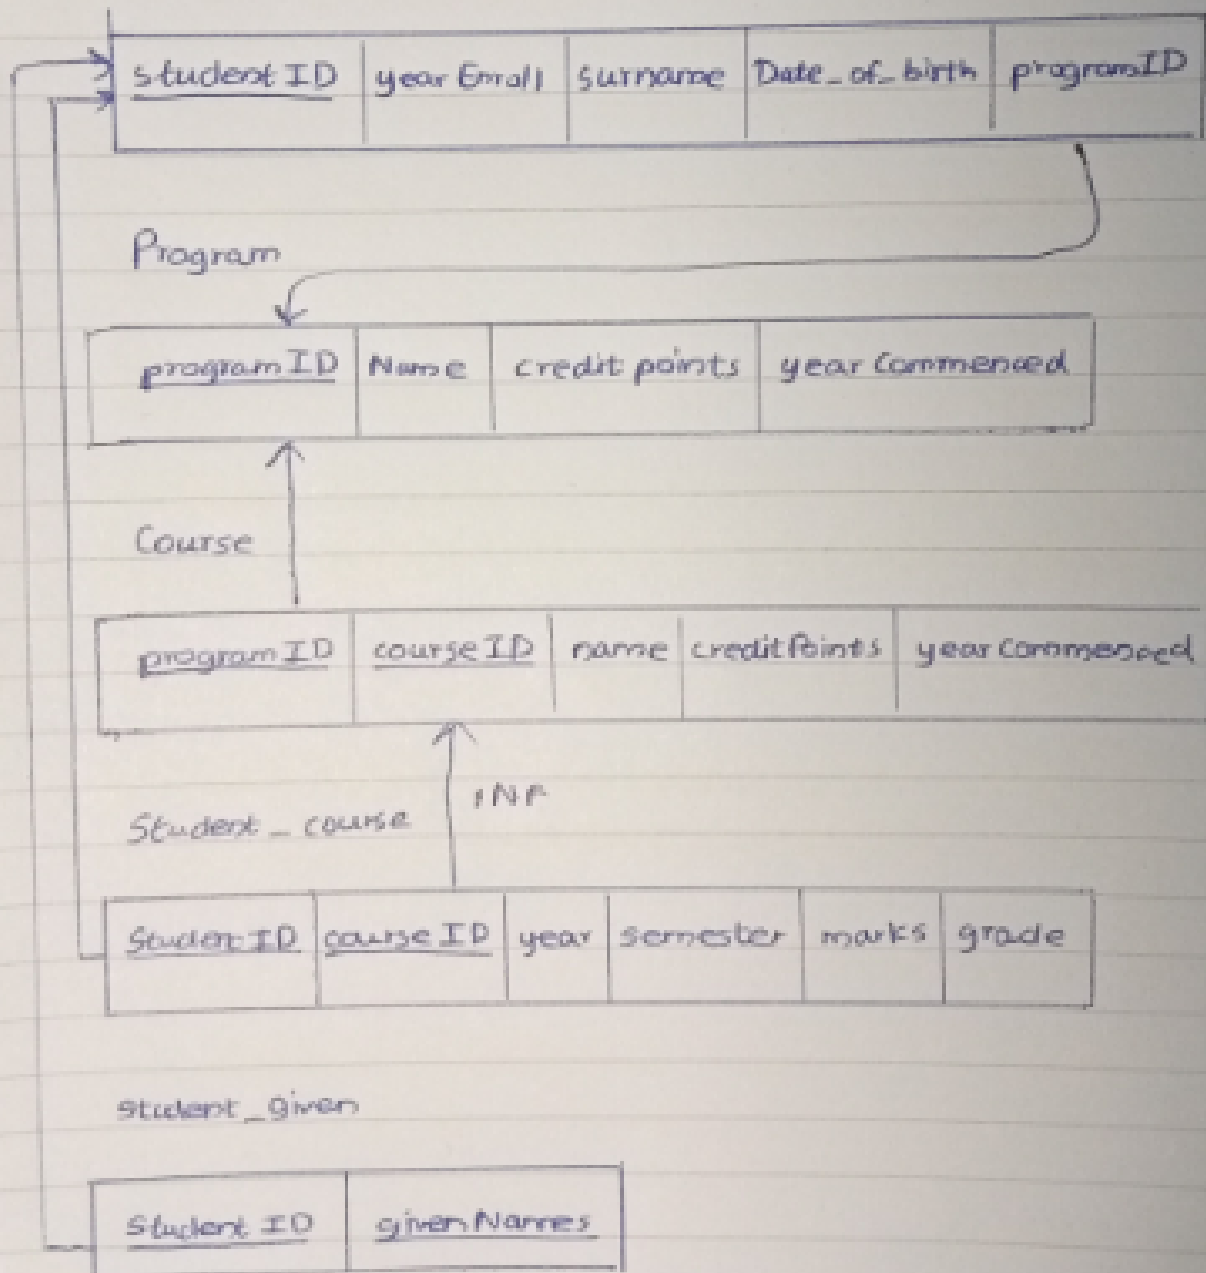 student ID year Enroll surname Date_of_birth programID
Program
program ID Name credit points year Commenced
Course
program ID course ID name credit Points year Commenced
Student_course
Student ID course ID year semester marks grade
student_given
Student ID given Names